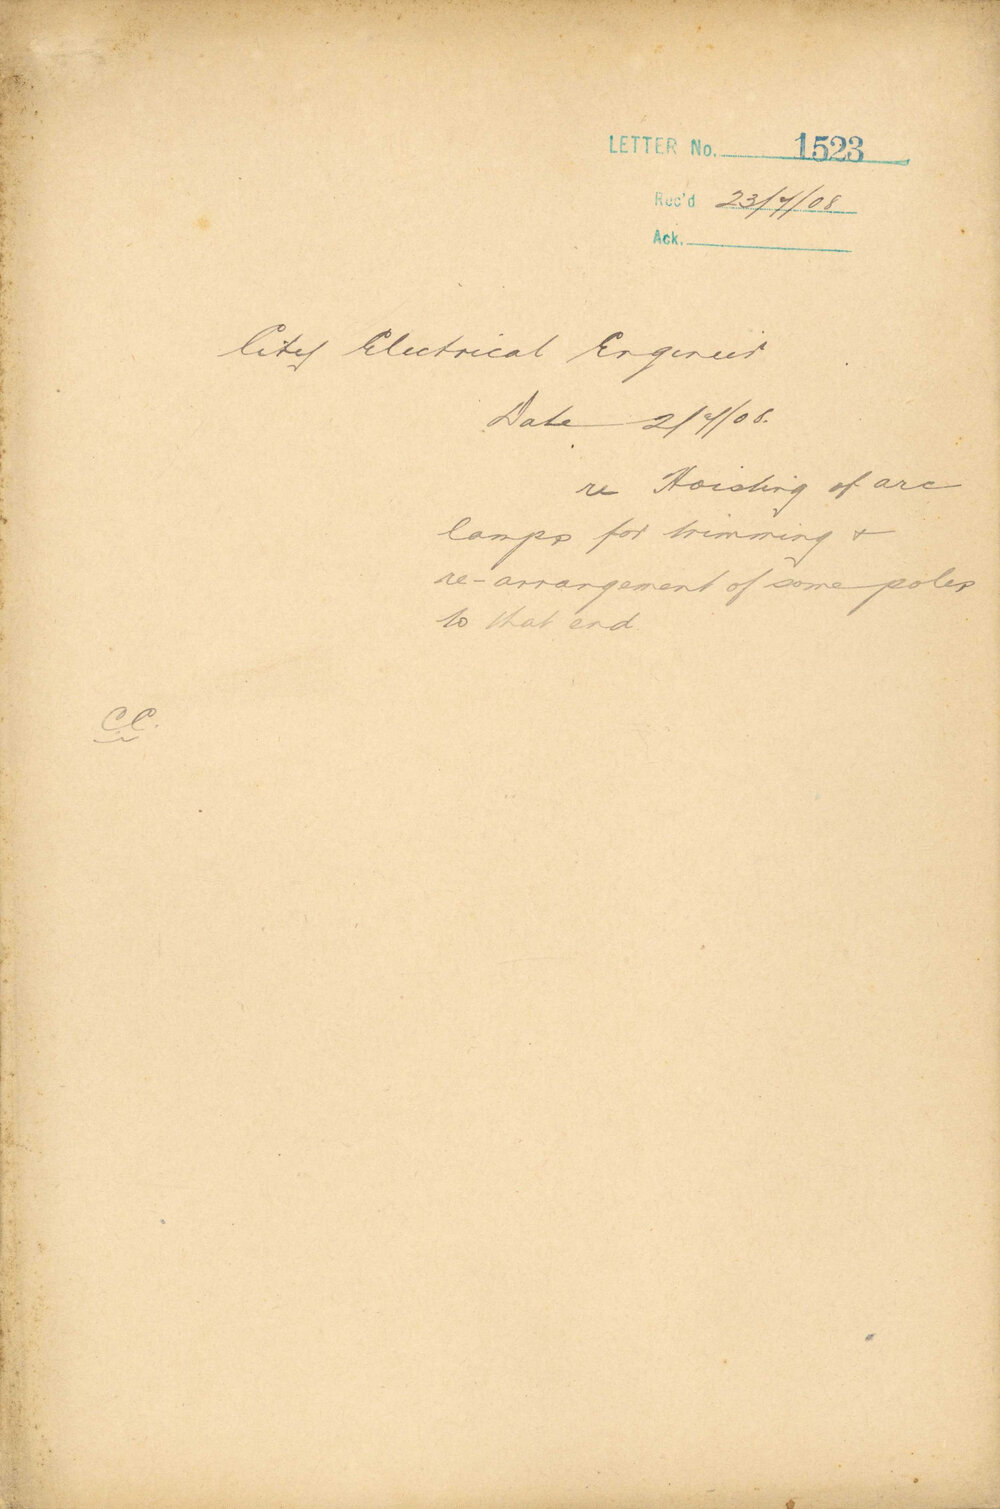 LETTER No. 1523
Rec'd 23/7/08
Ack.
City Electrical Engineer
Date 2/7/08.
re Hoisting of arc
lamps for trimming &
re-arrangement of some poles
to that end
C.C.